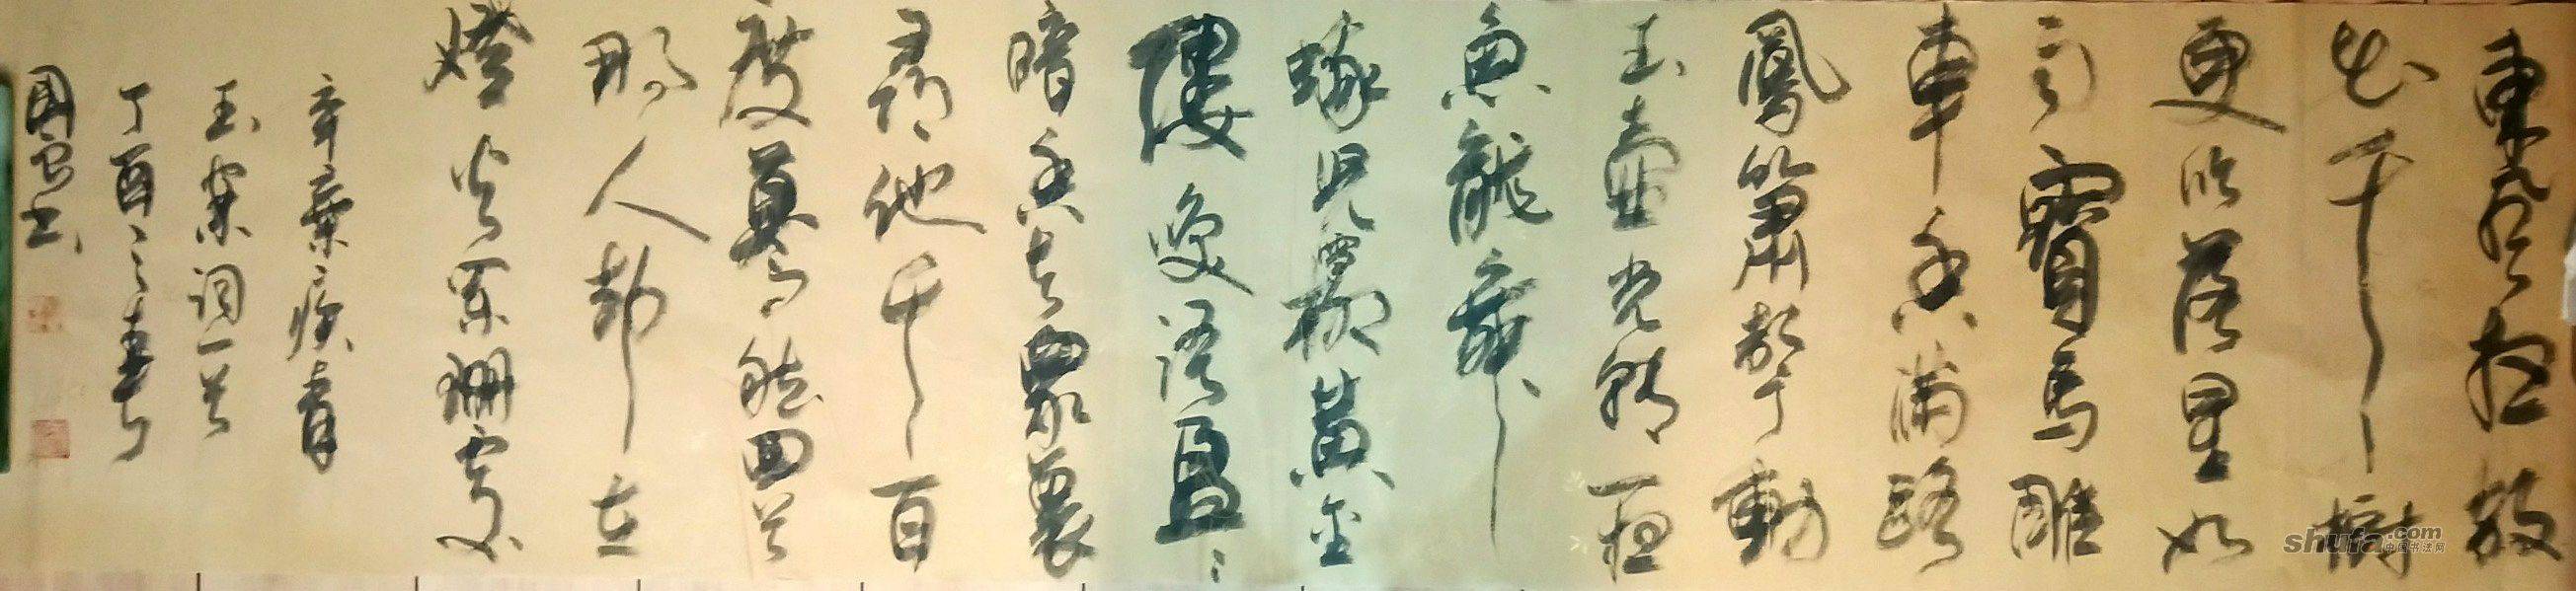 東風夜放
花千樹
更吹落星如
雨寶馬雕
車香滿路
鳳簫聲動
玉壺光轉一夜
魚龍舞
蛾兒雪柳黃金
縷笑語盈〻
暗香去眾裏
尋他千百
度驀然回首
那人却在
燈火闌珊處
辛棄疾青
玉案詞一首
丁酉之春
國书
shufa.com
中国书法网